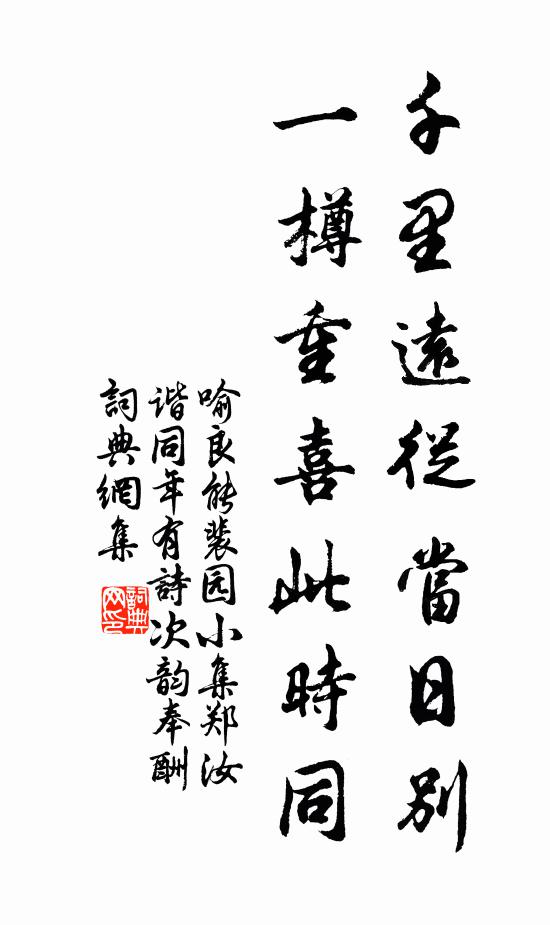 千里遠從當日別
一樽重喜此時同
喻良能裴园小集郑汝
谐同年有詩次韵奉酬
詞典網集
詞典网印